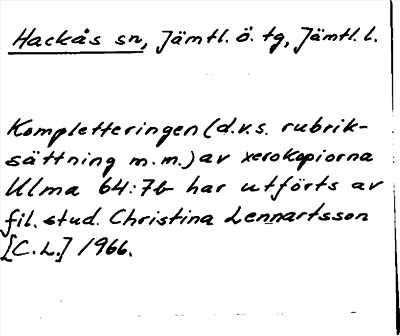 Hackås sn, Jämtl. ö. tg, Jämtl. l.
Kompletteringen (d.v.s. rubrik-
sättning m.m.) av xerokopiorna
Ulma 64:7b har utförts av
fil. stud. Christina Lennartsson
[C.L.] 1966.